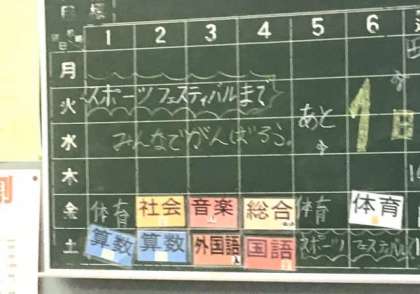 1 2 3 4 5 6
月
火 スポーツフェスティバルまで あと 1日
水 みんなでがんばろう。
木
金 体育 社会 音楽 総合 体育 体育
土 算数 算数 外国語 国語 スポーツフェスティバル